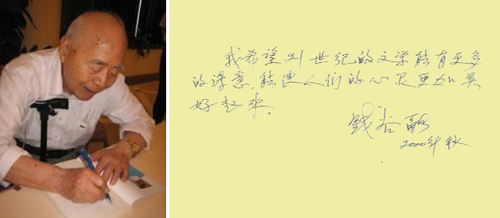 我希望21世纪的文学能有更多
的诗意，能使人们的心灵更加美
好起来。
钱谷融
2000年秋